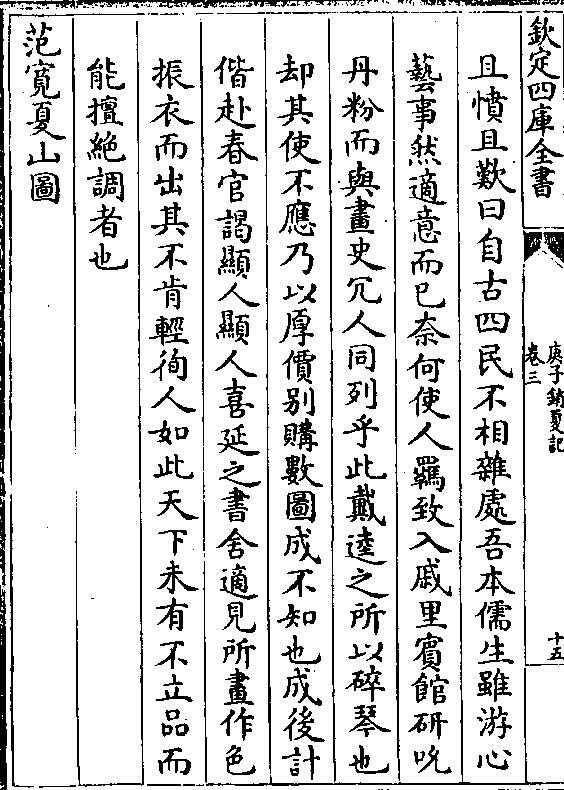 欽定四庫全書
庚子銷夏記
卷三
十五
且憤且歎曰自古四民不相雜處吾本儒生雖游心
藝事然適意而已奈何使人羈致入戚里賓館研吮
丹粉而與畫史冗人同列乎此戴逵之所以碎琴也
却其使不應乃以厚價别購數圖成不知也成後計
偕赴春官謁顯人顯人喜延之書舍適見所畫作色
振衣而出其不肯輕徇人如此天下未有不立品而
能擅絶調者也
范寛夏山圖